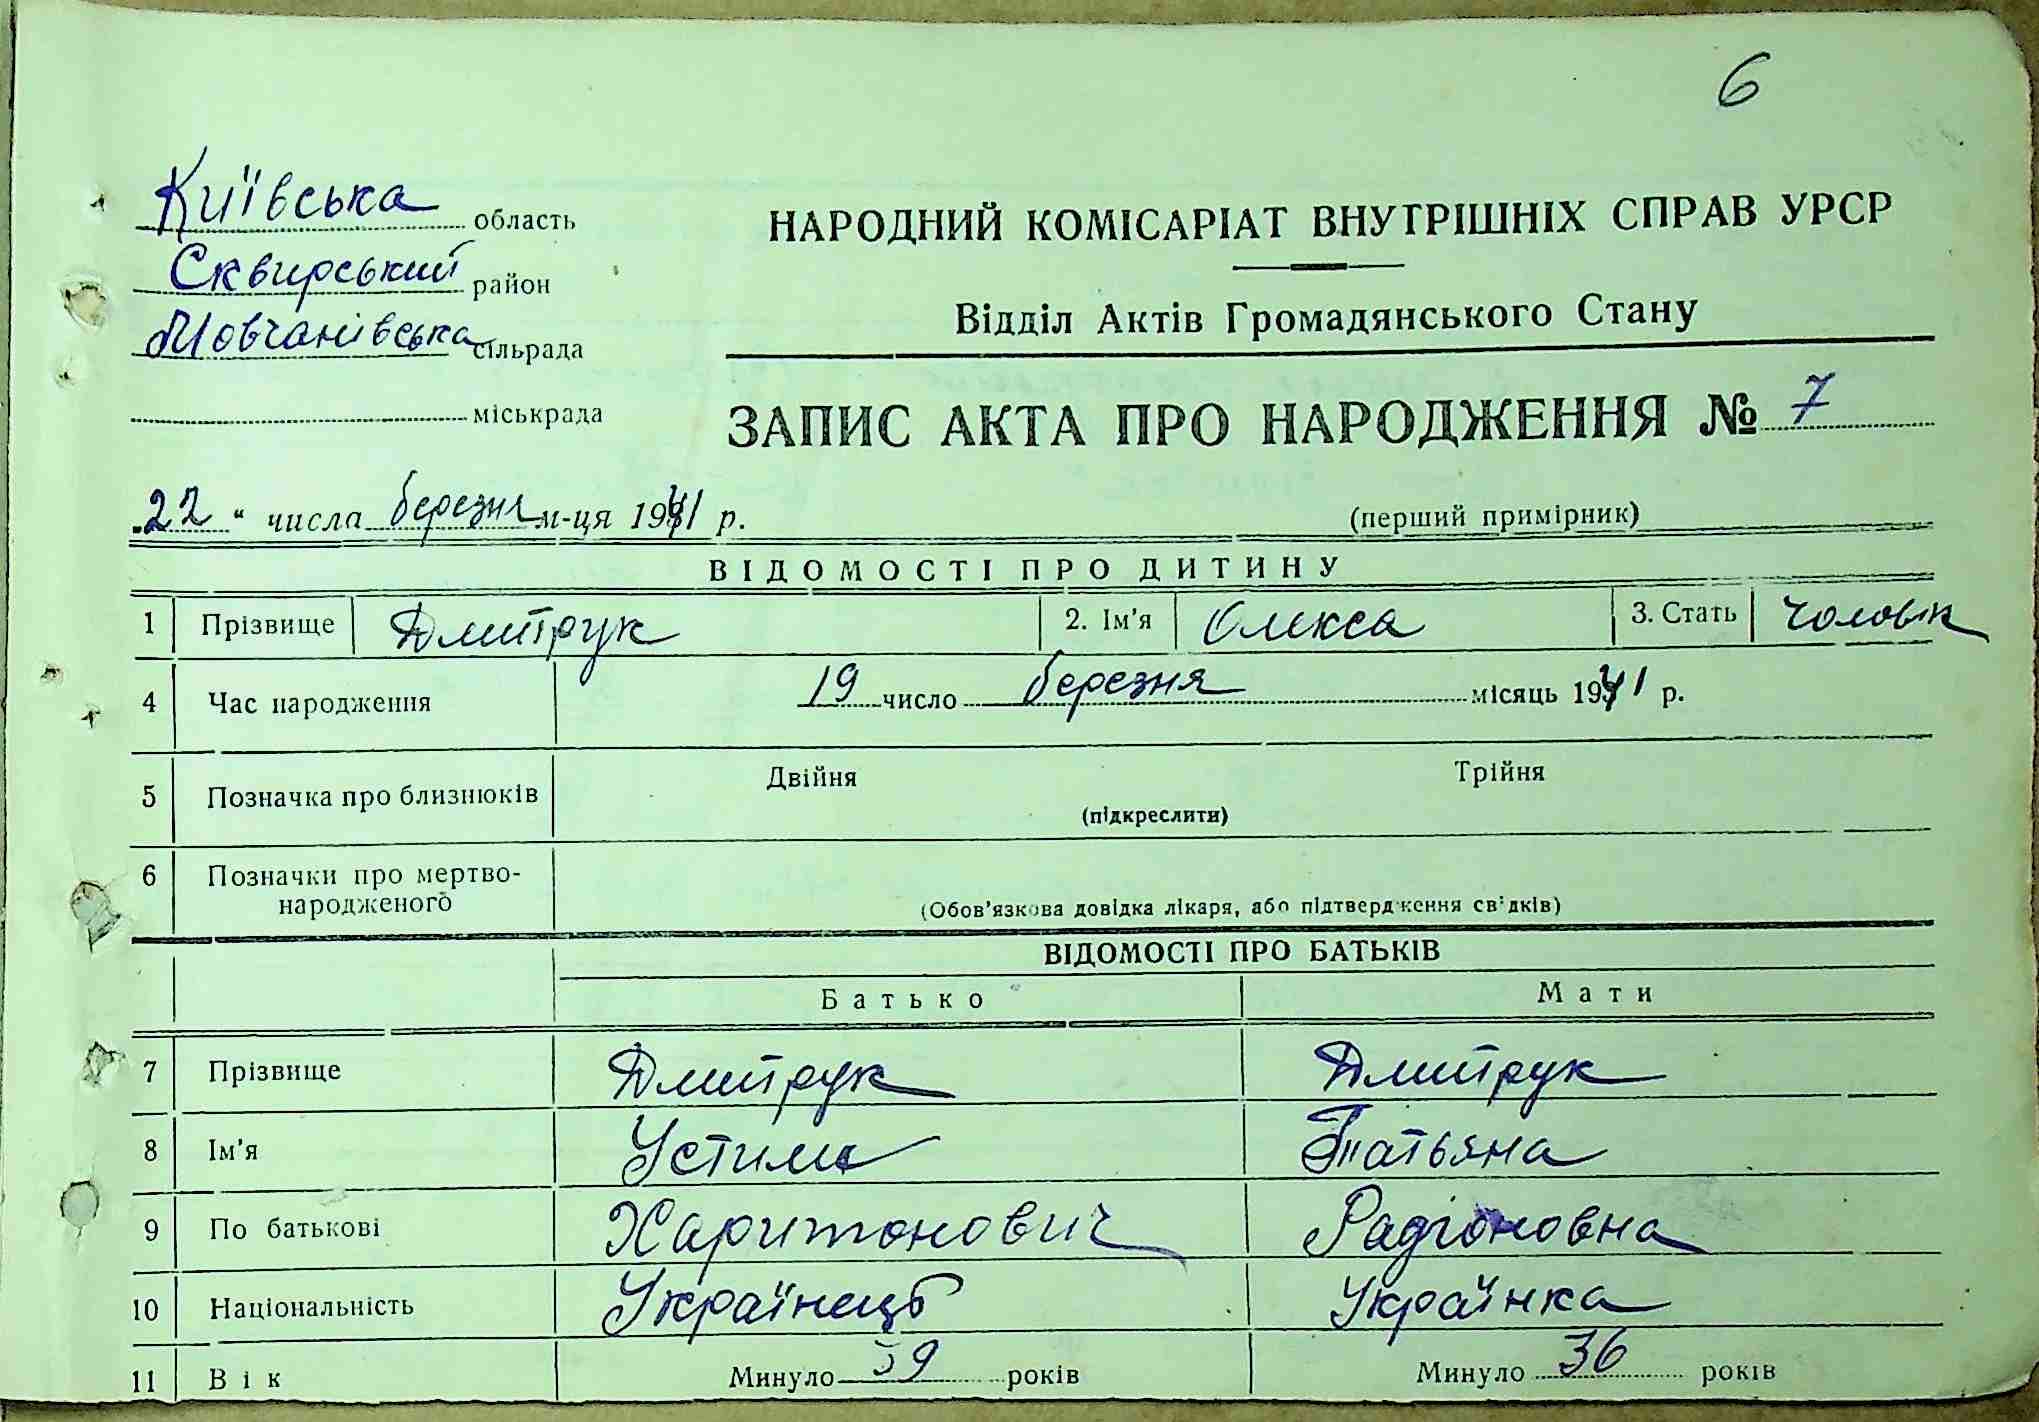 6
Київська область
Сквирський район
Мовчанівська сільрада
міськрада
НАРОДНИЙ КОМІСАРІАТ ВНУТРІШНІХ СПРАВ УРСР
Відділ Актів Громадянського Стану
ЗАПИС АКТА ПРО НАРОДЖЕННЯ № 7
„22“ числа березня м-ця 1941 р.
(перший примірник)
ВІДОМОСТІ ПРО ДИТИНУ
1 Прізвище Дмитрук 2. Ім'я Олекса 3. Стать чоловік
4 Час народження 19 число березня місяць 1941 р.
5 Позначка про близнюків Двійня Трійня
(підкреслити)
6 Позначки про мертво-
народженого
(Обов'язкова довідка лікаря, або підтвердження свідків)
ВІДОМОСТІ ПРО БАТЬКІВ
Батько Мати
7 Прізвище Дмитрук Дмитрук
8 Ім'я Устим Татьяна
9 По батькові Харитонович Радіоновна
10 Національність Українець Українка
11 Вік Минуло 39 років Минуло 36 років